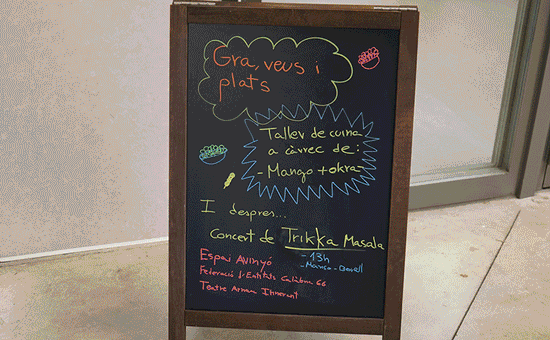 Gra, veus i
plats
Taller de cuina
a càrrec de:
- Mango + okra -
I despres...
Concert de Trikka Masala
- 13h
Espai Avinyó
Federació d'Entitats Calàbria 66
Teatre Arnau Itinerant